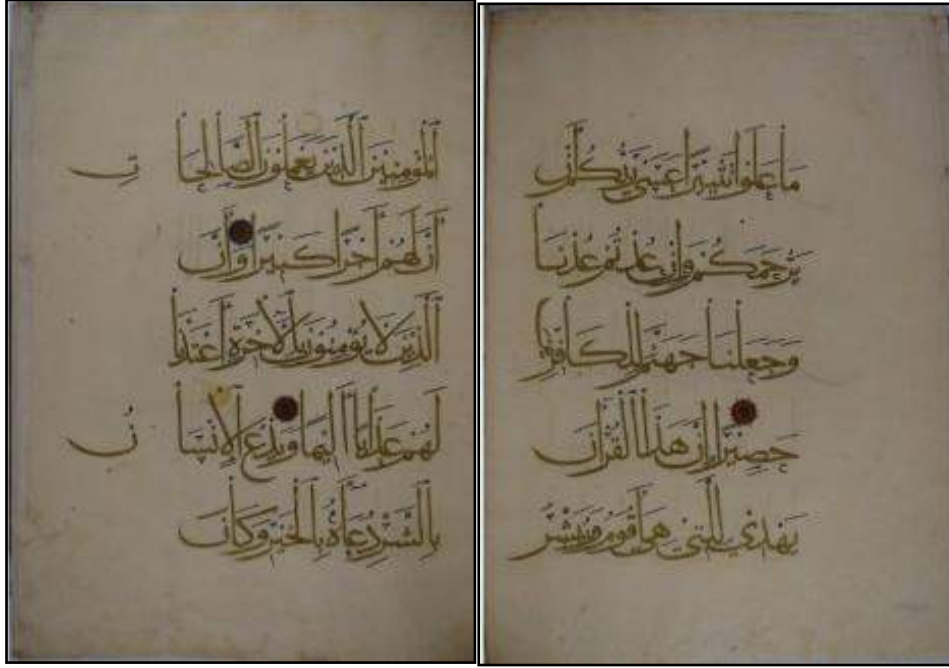 مَا عَلَوْا تَتْبِيرًا عَسَىٰ رَبُّكُمْ أَنْ
يَرْحَمَكُمْ وَإِنْ عُدْتُمْ عُدْنَا
وَجَعَلْنَا جَهَنَّمَ لِلْكَافِرِينَ
حَصِيرًا إِنَّ هَذَا الْقُرْآنَ
يَهْدِي لِلَّتِي هِيَ أَقْوَمُ وَيُبَشِّرُ
الْمُؤْمِنِينَ الَّذِينَ يَعْمَلُونَ الصَّالِحَا تِ
أَنَّ لَهُمْ أَجْرًا كَبِيرًا وَأَنَّ
الَّذِينَ لَا يُؤْمِنُونَ بِالْآخِرَةِ أَعْتَدْنَا
لَهُمْ عَذَابًا أَلِيمًا وَيَدْعُ الْإِنْسَا نُ
بِالشَّرِّ دُعَاءَهُ بِالْخَيْرِ وَكَانَ